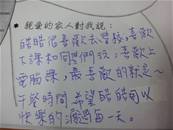 親愛的家人對我說:
皓皓很喜歡去學校,喜歡
下課和同學們玩;喜歡上
電腦課,最喜歡的就是~
午餐時間 希望皓皓可以
快樂的渡過每一天。